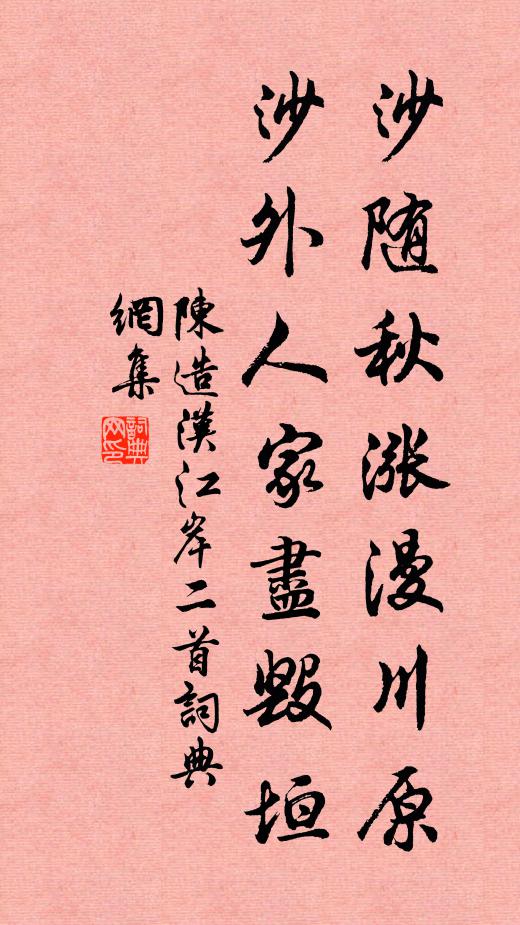 沙随秋涨漫川原
沙外人家盡毀垣
陳造漢江岸二首詞典
網集
詞典
网印